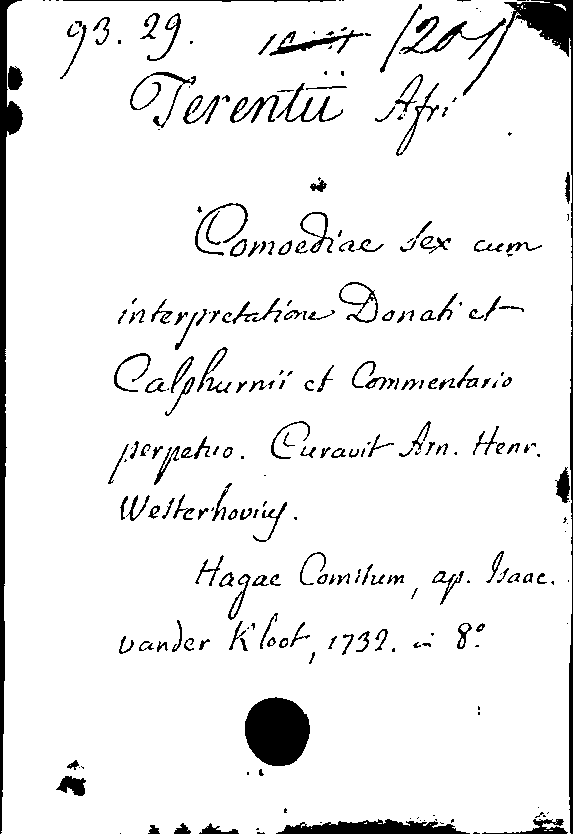 93. 29. (201)
Terentii Afri
Comoediae sex cum
interpretatione Donati et
Calphurnii et Commentario
perpetuo. Curavit Arn. Henr.
Westerhovius.
Hagae Comitum, ap. Isaac.
vander Kloot, 1732. in 8°